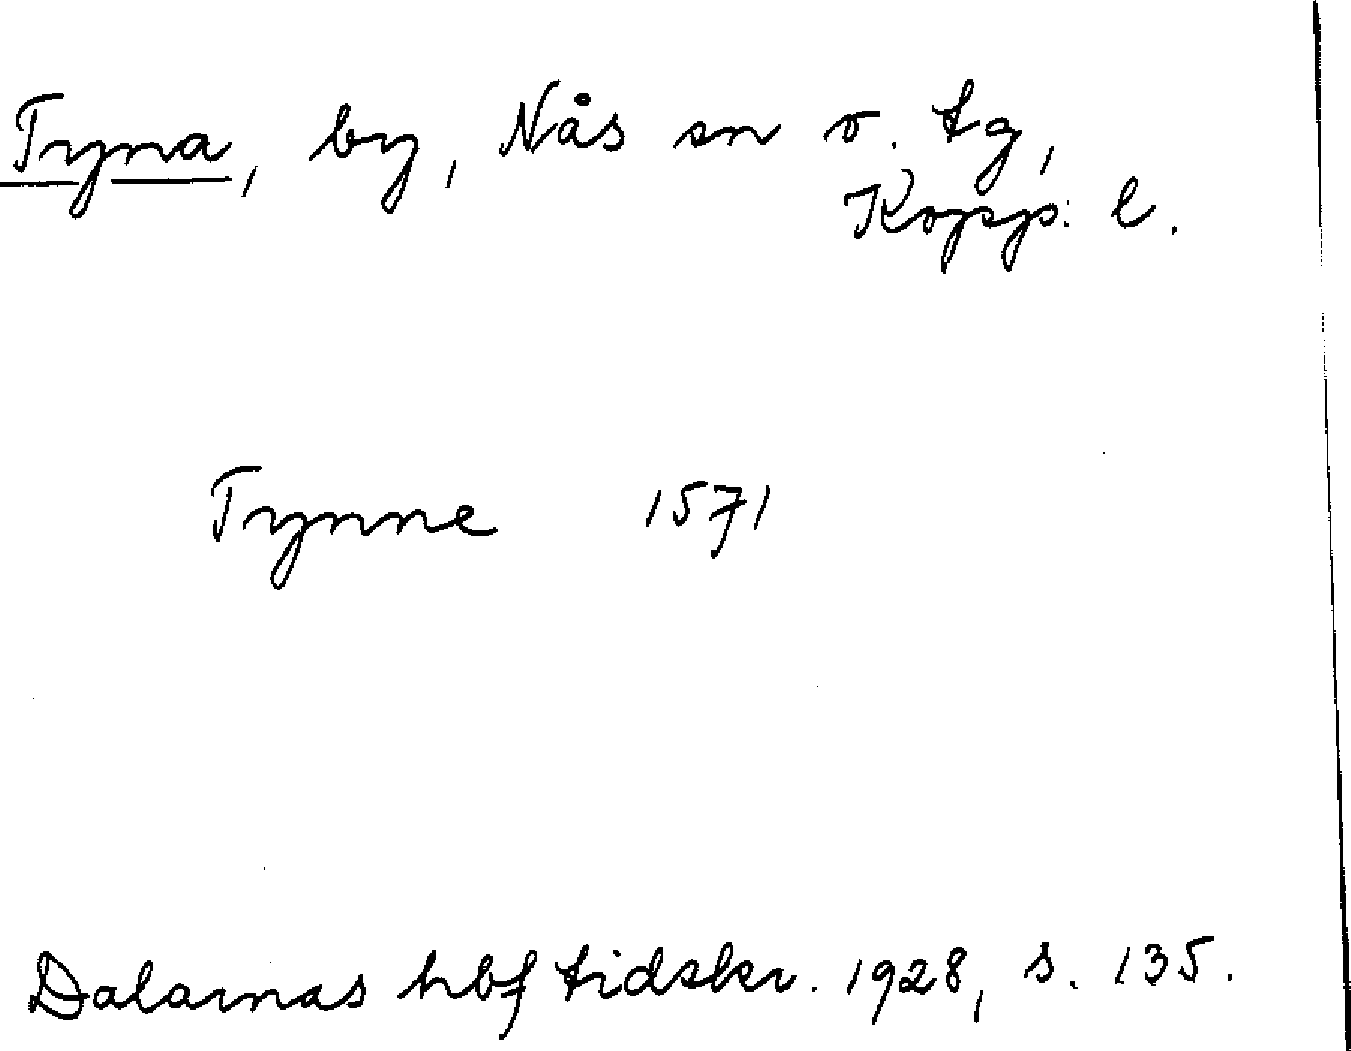 Tyna, by, Nås sn o. tg,
Kopp. l.
Tynne 1571
Dalarnas hbf tidskr. 1928, s. 135.